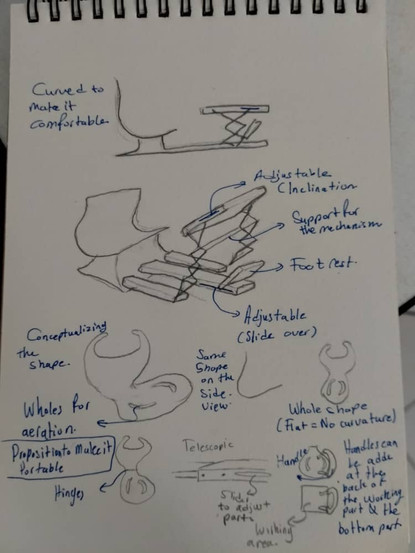 Curved to
make it
comfortable
Adjustable
(Inclination
Support for
the mechanism
Foot rest
Adjustable
(Slide over)
Conceptualizing
the
shape.
Same
shape
on the
side
view.
Wholes for
aeration.
Whole shape
(Flat = No curvature)
Proposition to Make it
Portable
Hinges
Telescopic
Slide
to adjust
part.
Handle
Handles can
be added
at the
back of
the working
part & the
bottom part.
Working
area.